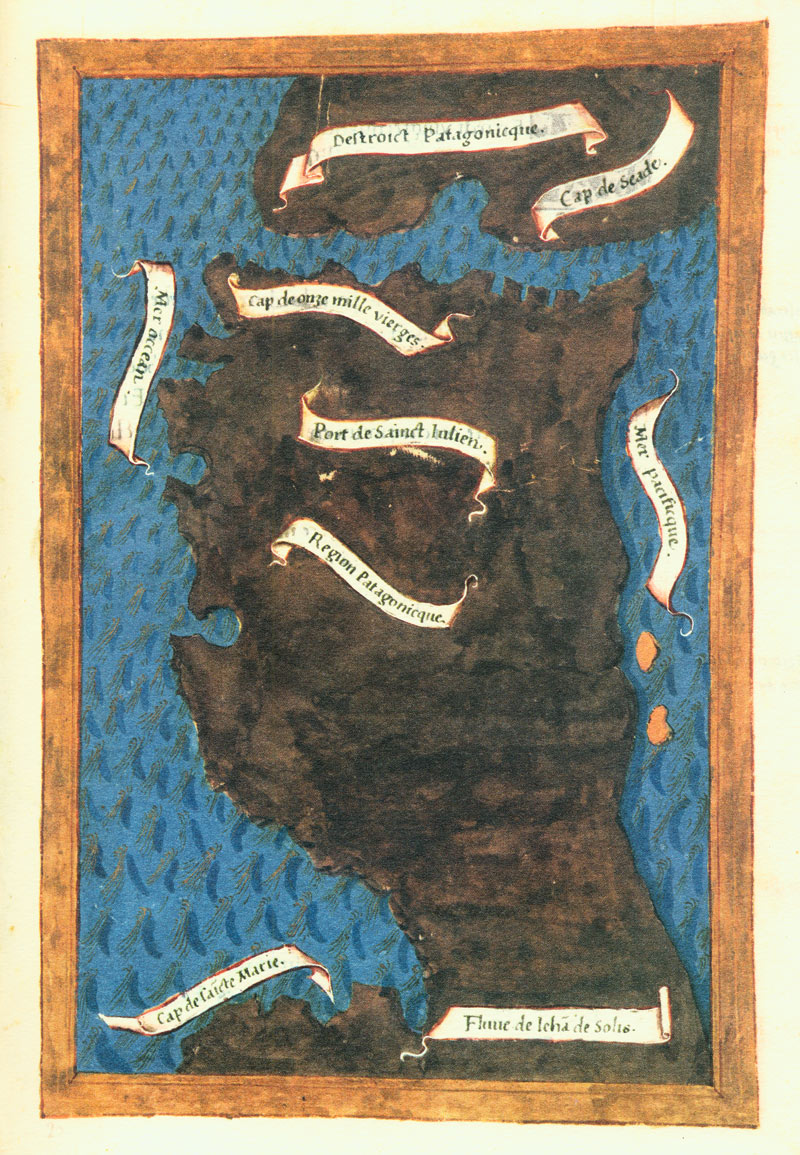 Destroict Patagonicque.
Cap de Seade.
Cap de onze mille vierges.
Mer occean.
Port de Sainct Iulien.
Mer pacificque.
Region Patagonicque.
Cap de saicte Marie.
Fluue de Iehã de Solis.